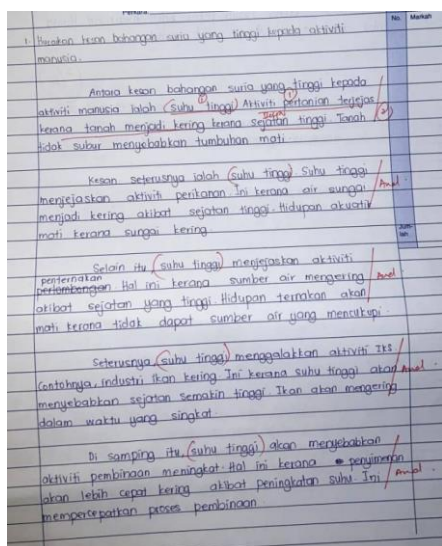 Perkara
No.
Markah
1. Huraikan kesan bahangan suria yang tinggi kepada aktiviti
manusia.
Antara kesan bahangan suria yang tinggi kepada
aktiviti manusia ialah (suhu tinggi) Aktiviti pertanian terjejas
kerana tanah menjadi kering kerana sejatan tinggi. Tanah
tidak subur menyebabkan tumbuhan mati
Kesan seterusnya ialah (suhu tinggi). Suhu tinggi
menjejaskan aktiviti perikanan. Ini kerana air sungai
menjadi kering akibat sejatan tinggi. Hidupan akuatik
mati kerana sungai kering.
Jum-
lah
Selain itu, (suhu tinggi) menjejaskan aktiviti
penternakan
perlombongan. Hal ini kerana sumber air mengering
akibat sejatan yang tinggi. Hidupan ternakan akan
mati kerana tidak dapat sumber air yang mencukupi.
Seterusnya, (suhu tinggi) menggalakkan aktiviti IKS
Contohnya, industri ikan kering. Ini kerana suhu tinggi akan
menyebabkan sejatan semakin tinggi. Ikan akan mengering
dalam waktu yang singkat.
Di samping itu, (suhu tinggi) akan menyebabkan
aktiviti pembinaan meningkat. Hal ini kerana penyimenan
akan lebih cepat kering akibat peningkatan suhu. Ini
mempercepatkan proses pembinaan